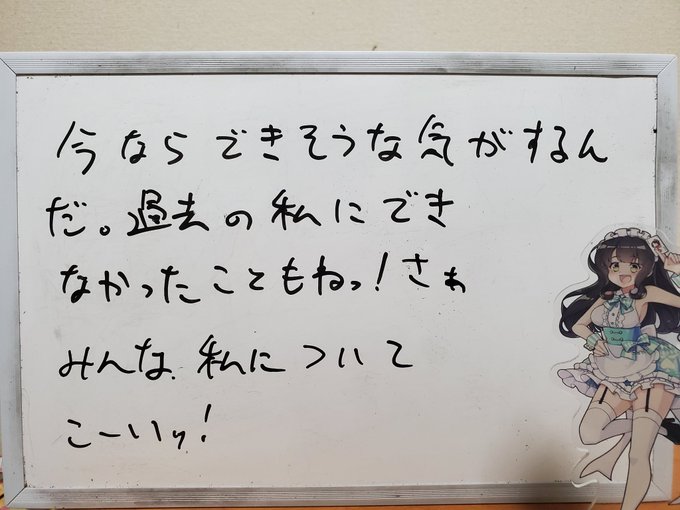 今ならできそうな気がするん
だ。過去の私にでき
なかったこともねっ！さぁ
みんな、私について
こーいッ！